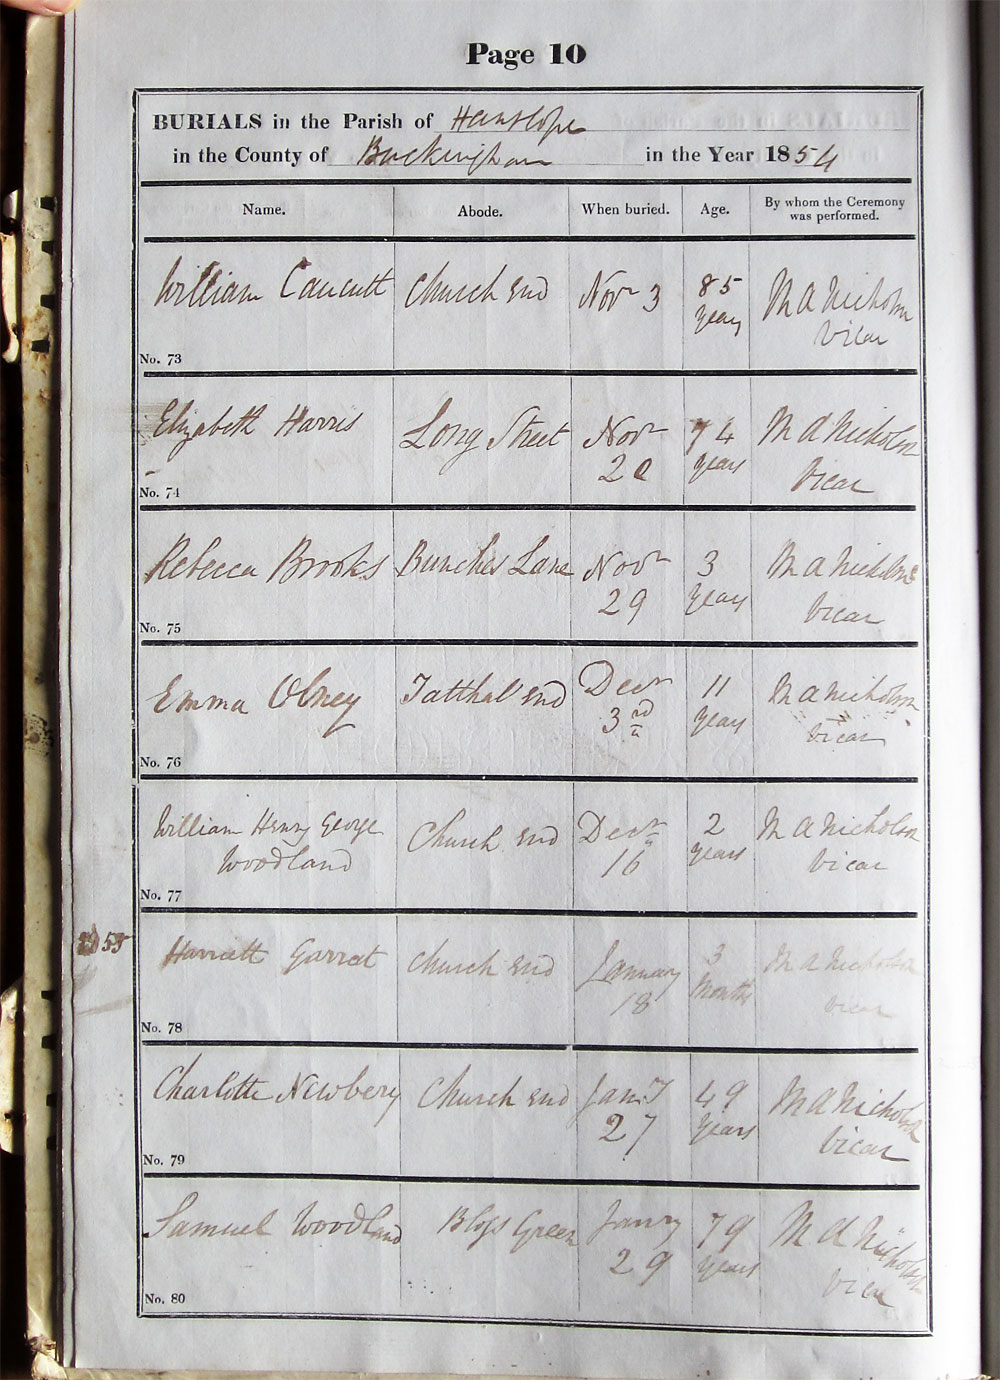 Page 10
BURIALS in the Parish of Hanslope
in the County of Buckingham in the Year 1854
Name. Abode. When buried. Age. By whom the Ceremony was performed.
William Caucutt Church End Novr 3 85 years M A Nicholson Vicar
No. 73
Elizabeth Harris Long Street Novr 20 74 years M A Nicholson Vicar
No. 74
Rebecca Brooks Bunches Lane Novr 29 3 years M A Nicholson Vicar
No. 75
Emma Olney Tatthal End Decr 3rd 11 years M A Nicholson Vicar
No. 76
William Henry George Woodland Church End Decr 16 2 years M A Nicholson Vicar
No. 77
1855
Harriett Garrat Church End January 18 3 Months M A Nicholson Vicar
No. 78
Charlotte Newbery Church End Jany 27 49 years M A Nicholson Vicar
No. 79
Samuel Woodland Green 29 79 years M A Nicholson Vicar
No. 80